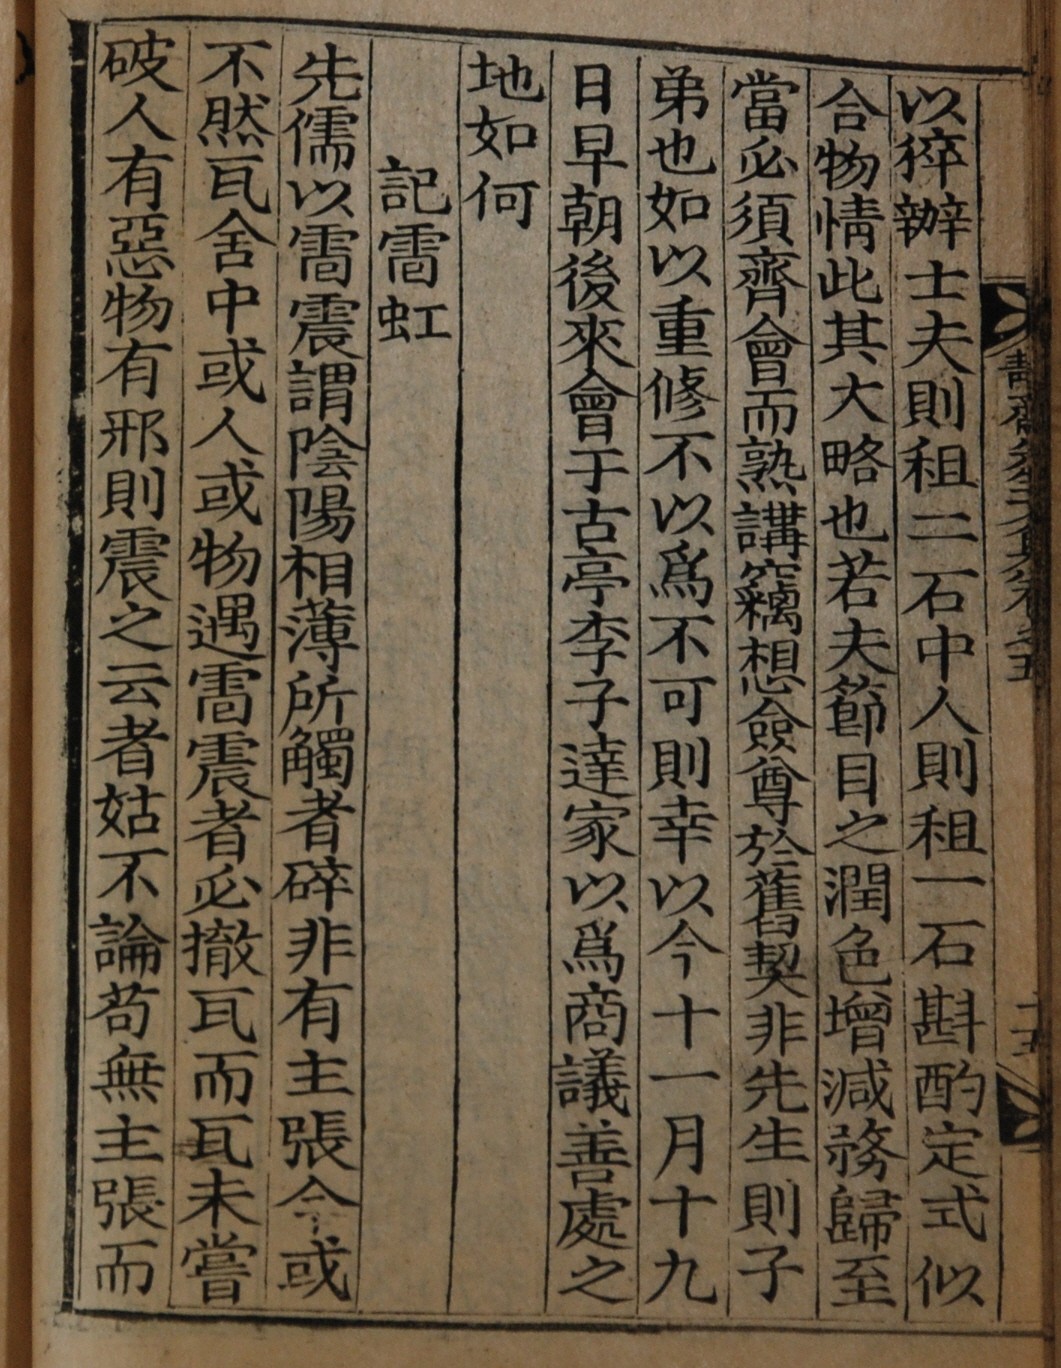 以猝辦士夫則租二石中人則租一石斟酌定式似
合物情此其大略也若夫節目之潤色增減務歸至
當必須齊會而熟講竊想僉尊於舊契非先生則子
弟也如以重修不以爲不可則幸以今十一月十九
日早朝後來會于古亭李子達家以爲商議善處之
地如何
記雷虹
先儒以雷震謂陰陽相薄所觸者碎非有主張今或
不然瓦舍中或人或物遇雷震者必撤瓦而瓦未嘗
破人有惡物有邪則震之云者姑不論苟無主張而